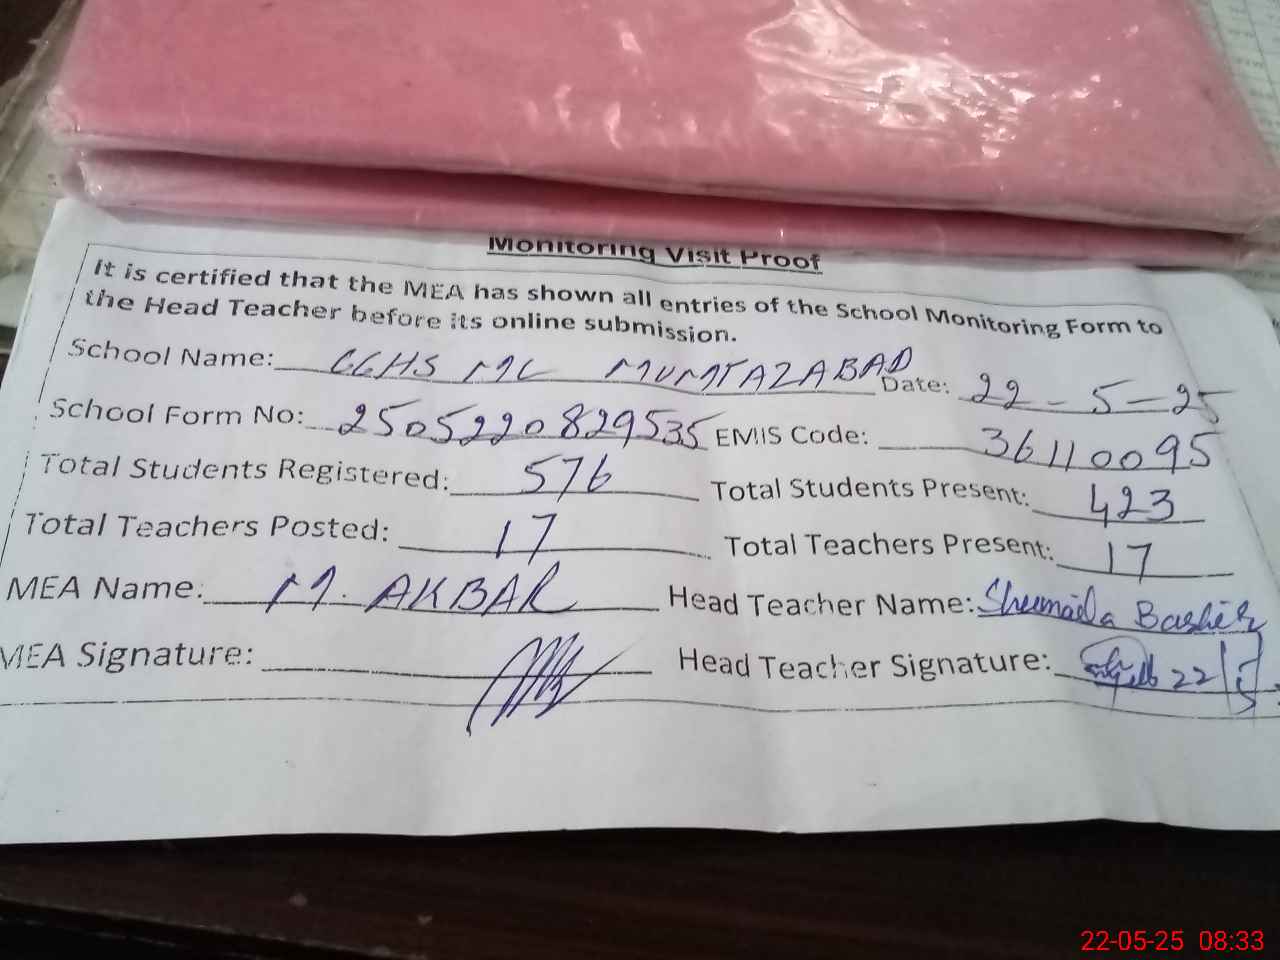 Monitoring Visit Proof
It is certified that the MEA has shown all entries of the School Monitoring Form to
the Head Teacher before its online submission.
School Name: GGHS MC MUMTAZABAD Date: 22-5-25
School Form No: 2505220829535 EMIS Code: 36110095
Total Students Registered: 576 Total Students Present: 423
Total Teachers Posted: 17 Total Teachers Present: 17
MEA Name: M. AKBAR Head Teacher Name: Shumaila Bashir
MEA Signature: Head Teacher Signature: 22/5
22-05-25 08:33